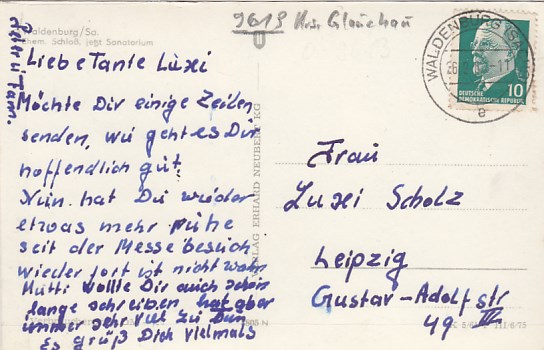 9613 Krs. Glauchau
Waldenburg/Sa.
ehem. Schloß, jetzt Sanatorium
Liebe Tante Luxi
Möchte Dir einige Zeilen
senden, wie geht es Dir
hoffendlich gut.
Nun hat Du wieder
etwas mehr Ruhe
seit der Messebesuch
wieder fort ist nicht wahr
Mutti wollte Dir auch schon
lange schreiben, hat aber
immer sehr viel zu tun
Es grüß Dich vielmals
Fam.
VERLAG ERHARD NEUBERT KG
WALDENBURG (SACHS)
10
DEUTSCHE
DEMOKRATISCHE REPUBLIK
e
Frau
Luxi Scholz
Leipzig
Gustav-Adolf str
49 III
III/6/75